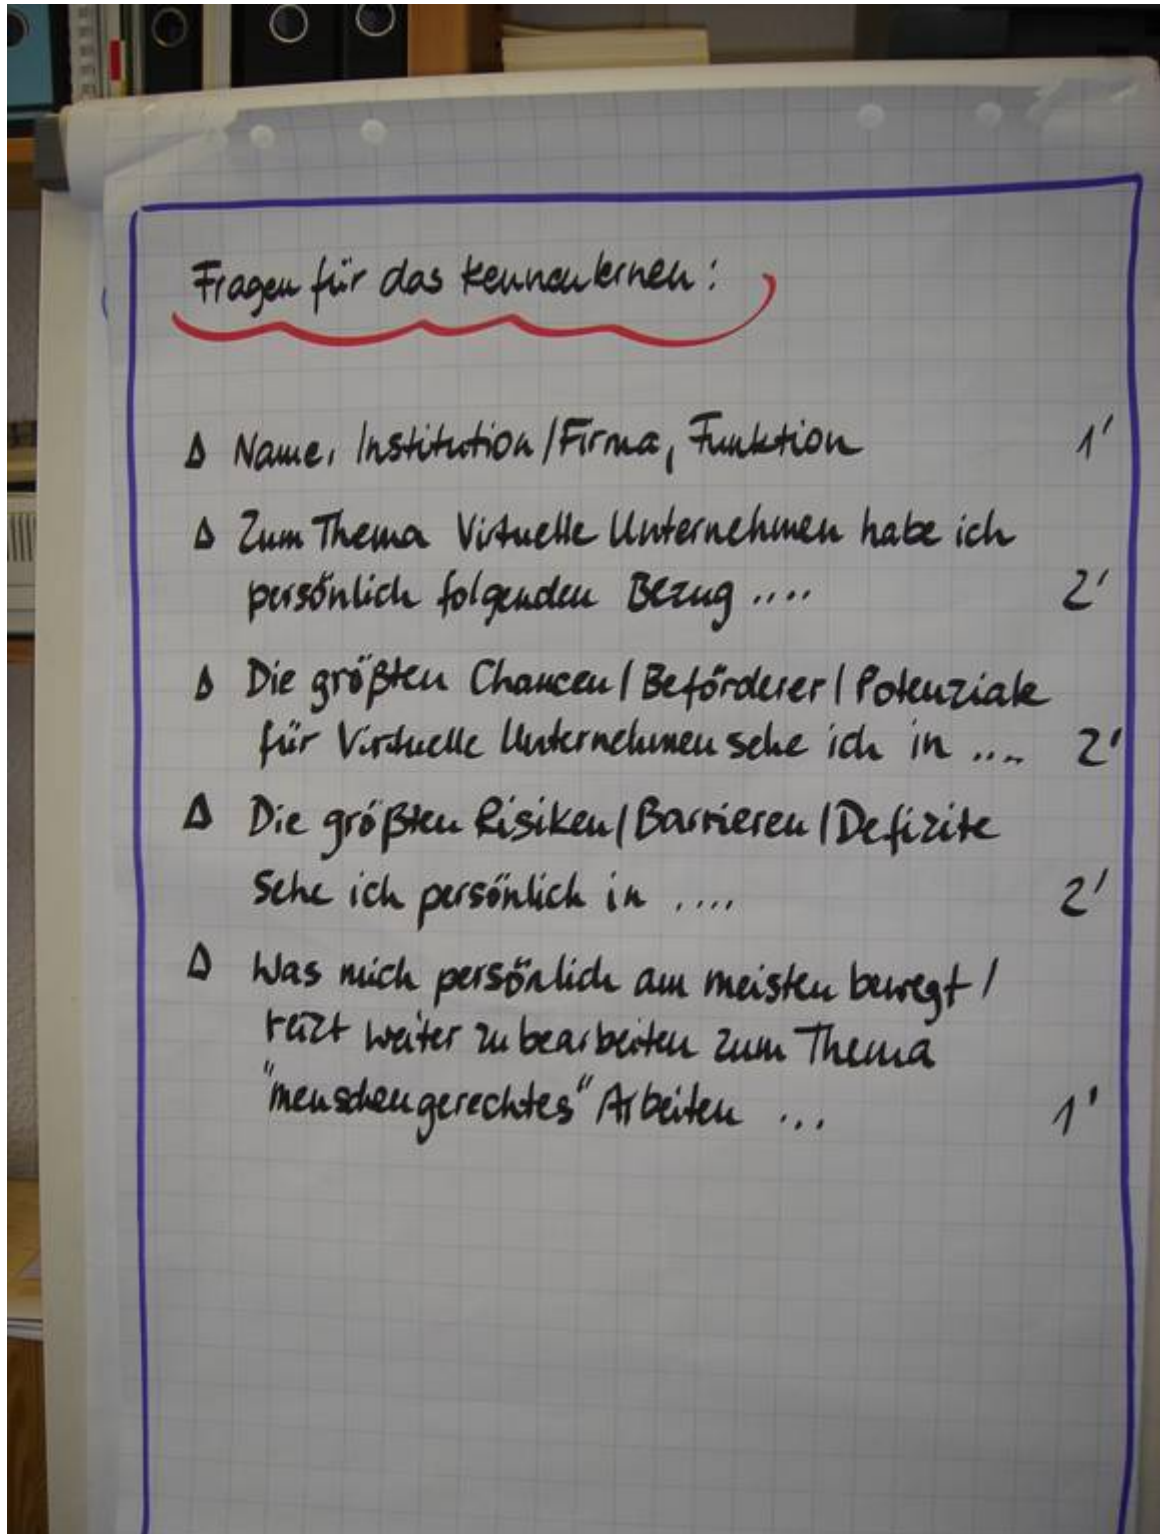 Fragen für das Kennenlernen:
Δ Name, Institution/Firma, Funktion 1'
Δ Zum Thema Virtuelle Unternehmen habe ich
persönlich folgenden Bezug .... 2'
Δ Die größten Chancen/Beförderer/Potenziale
für Virtuelle Unternehmen sehe ich in .... 2'
Δ Die größten Risiken/Barrieren/Defizite
sehe ich persönlich in .... 2'
Δ Was mich persönlich am meisten bewegt/
reizt weiter zu bearbeiten zum Thema
"menschengerechtes" Arbeiten ... 1'